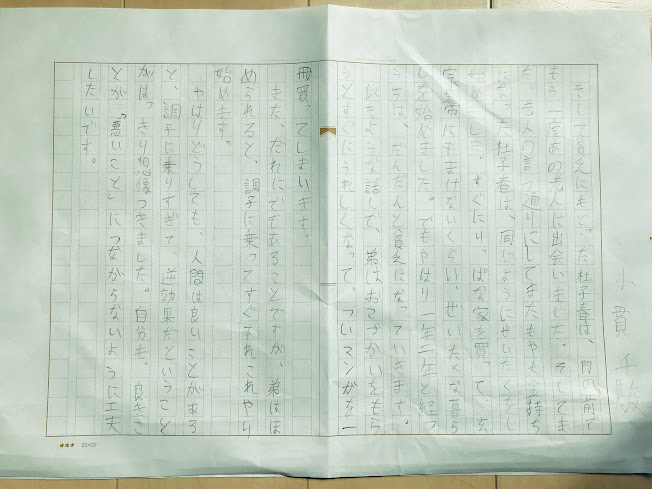 小貫千駿
そして貧乏にもどった杜子春は、門の前で
もう一度あの老人に出会いました。そしてま
た、老人の言う通りにしてまたもや大金持ち
になった杜子春は、同じようにぜいたくをし
始めました。すぐにりっぱな家を買って、玄
宗皇帝にもまけないくらい、ぜいたくな暮ら
しを始めました。でもやはり一年二年と経つ
うちに、だんだんと貧乏になっていきます。
似たような話しで、弟はおこづかいをもら
うとすぐにうれしくなって、ついマンガを一
冊買ってしまいます。
また、だれにでもあることですが、弟はほ
められると、調子に乗ってすぐあれこれやり
始めます。
やはりどうしても、人間は良いことがある
と、調子に乗りすぎて、逆効果だということ
がはっきり想像つきました。自分も、良きこ
とが「悪いこと」につながらないように工夫
したいです。
20×20